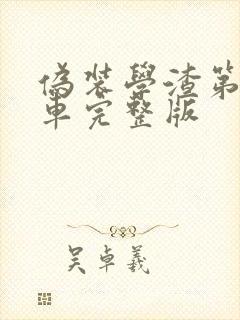 偽装學渣第
車完整版
吴卓羲